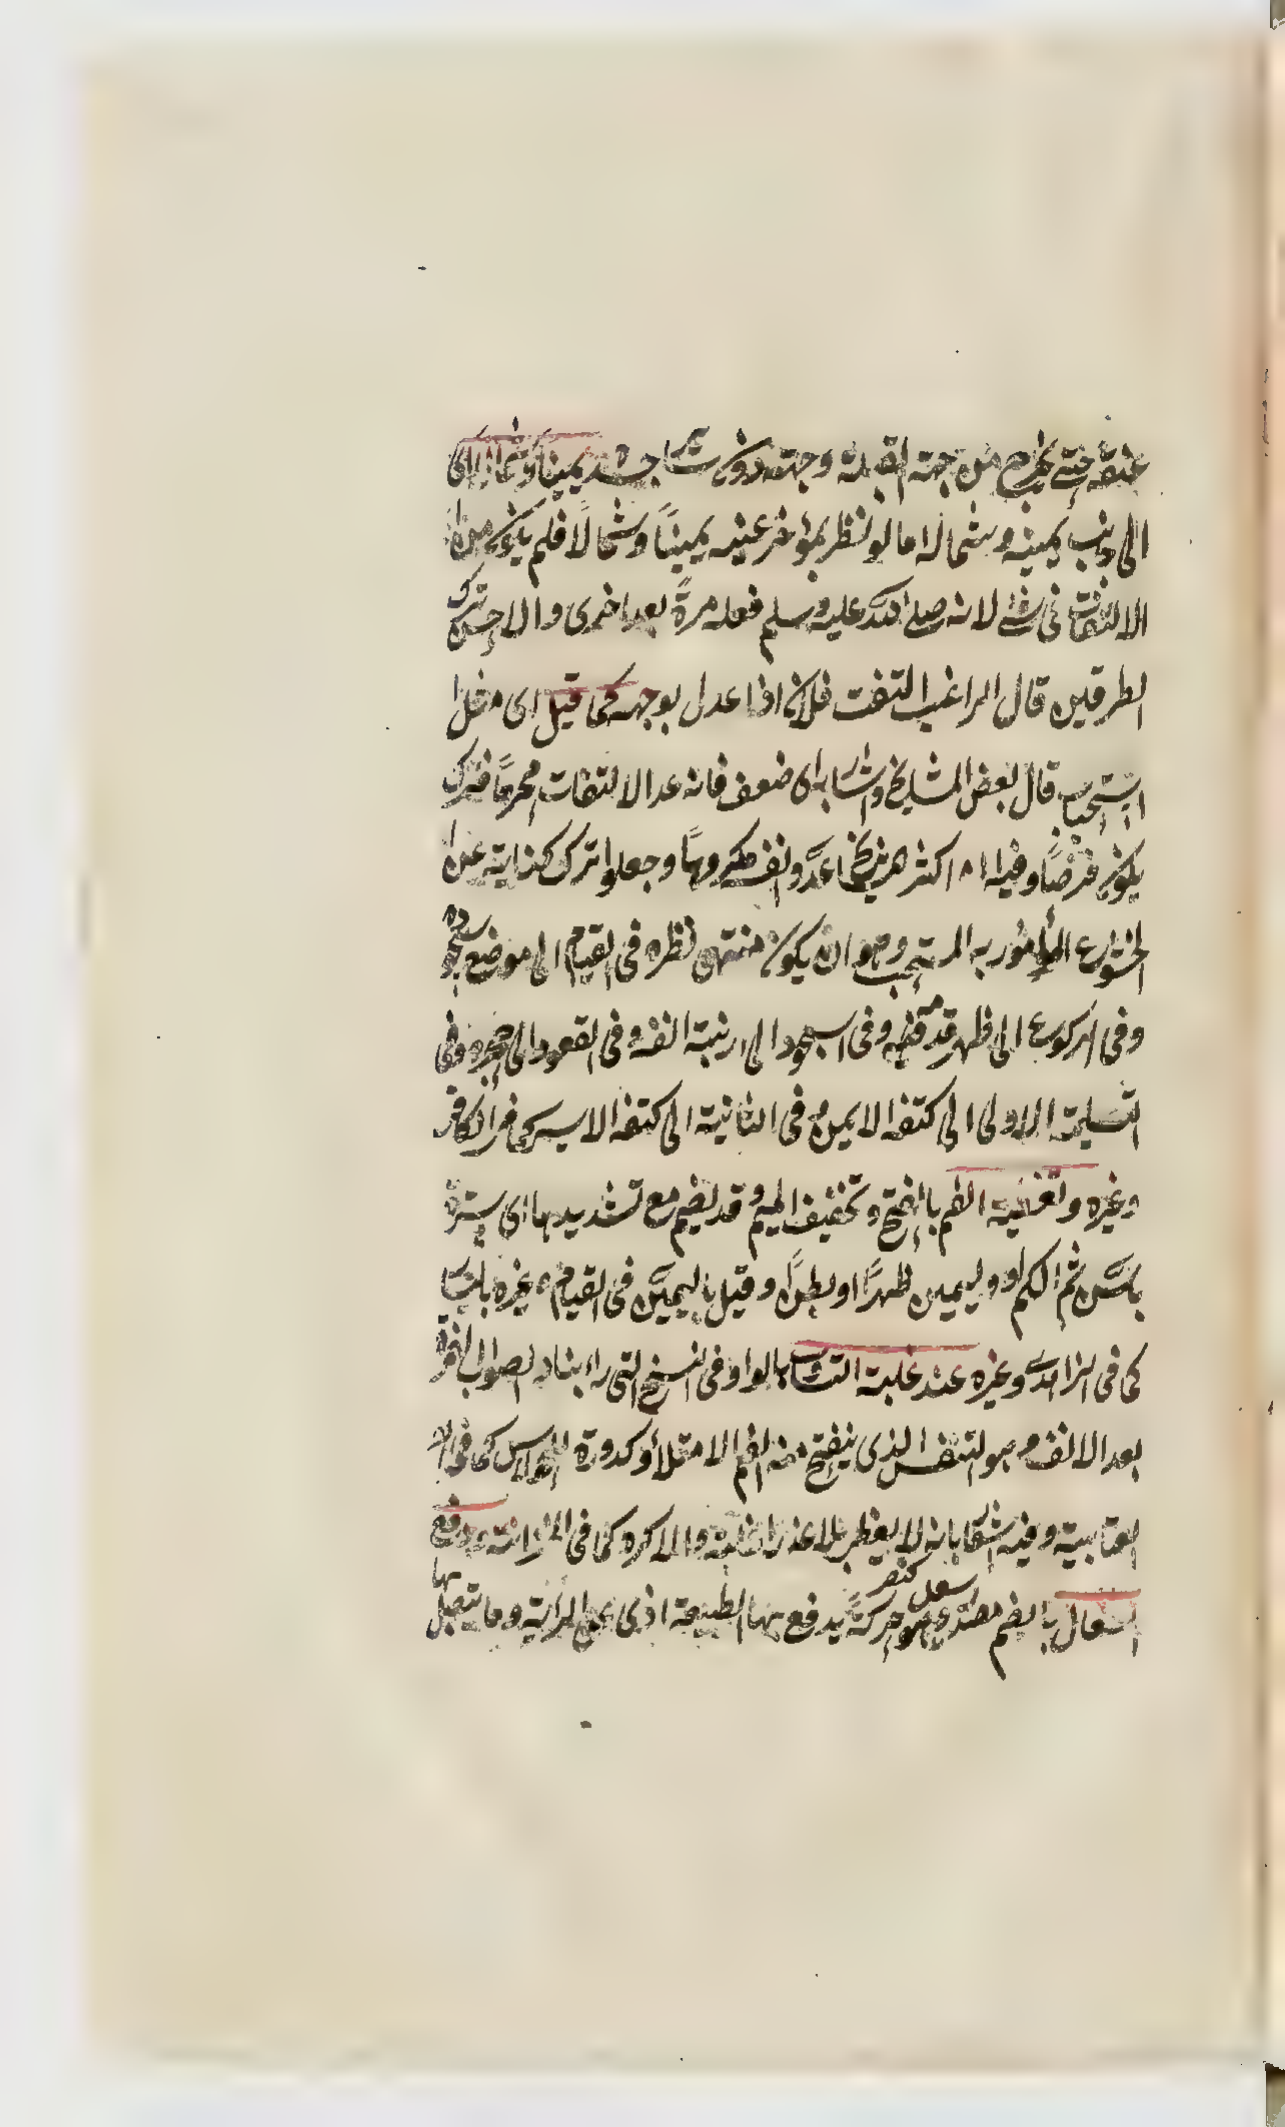 عنقه حتى يخرج من جهة القبلة وجهه دون سائر جسده يمينا وشمالا اى
الى جانب يمينه وشماله اما لو نظر بمؤخر عينه يمينًا وشمالًا فلم يكن من
الالتفات فى شئ لانه صلى الله عليه وسلم فعله مرةً بعد اخرى والاحسن ترك
الطرفين قال الراغب التفت فلان اذا عدل بوجهه كما قيل اى مثل ا
استحباب قال بعض المشايخ واشار به الى ضعف فانه عد الالتفات محرمًا فترك
يكون فرضًا وفيه ان اكثر هم عدوا نفسه مكروهًا وجعلوا ترك كناية عن
الخشوع المأمور به المستحب وهو ان يكون منتهى نظره فى القيام الى موضع سجوده
وفى الركوع الى ظهر قدميه وفى السجود الى ارنبة انفه وفى القعود الى حجره وفى
التسليمة الاولى الى كتفه الايمن وفى الثانية الى كتفه الايسر كما فى الكافى
وغيره وتغطية الفم بالفتح وتخفيف الميم وقد يضم مع تشديدها اى ستره
باسنن ثم الكم او وليمين ظهرًا او بطنًا وقيل باليمين فى القيام وغيره باليسار
كما فى الزاهدى وغيره عند غلبة التثاوب بالواو فى النسخ التى رايناه الصواب الهمزة
بعد الالف وهو التنفس الذى ينفتح منه الفم لامتلاء وكدورة الحواس كما فى
العتابية وفيه اشعار بانه لا يغطى بلا عذر الغلبة والا كره كما فى الخزانة ودفع
السعال بالضم مصدر سعل كنصر وهو حركة يدفع بها الطبيعة اذى عن الرئة وما يتصل بها